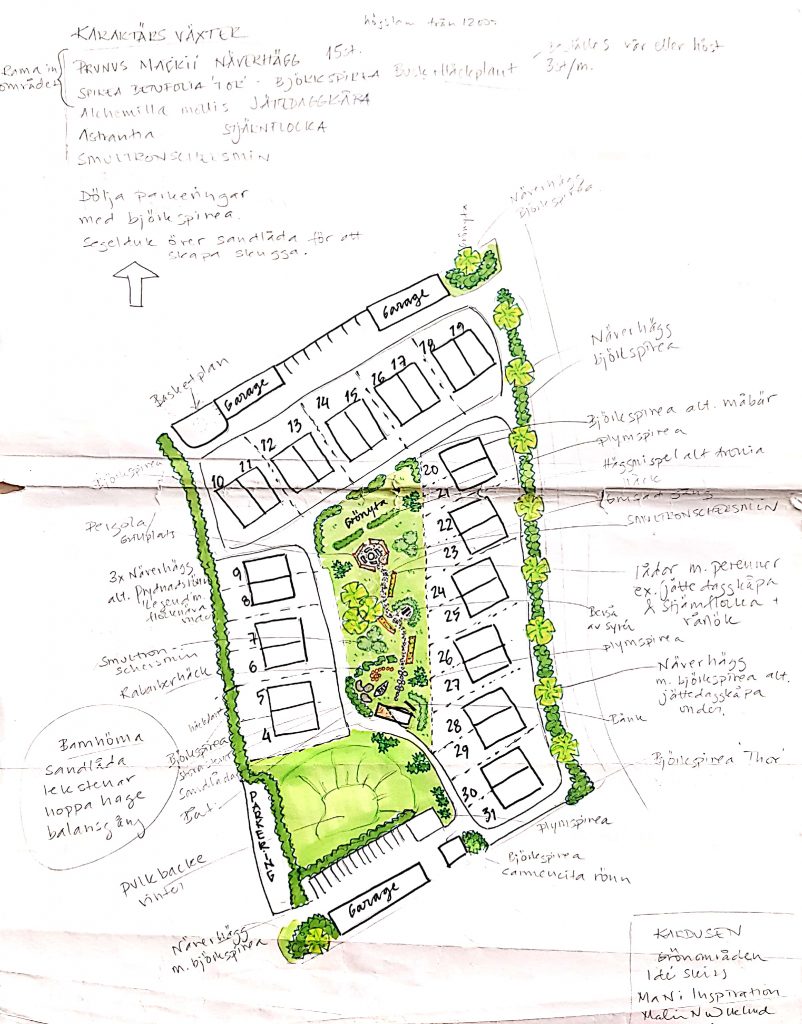 KARAKTÄRS VÄXTER
högstam från 1200:-
Rama in området
PRUNUS MAACKII NÄVERHÄGG 15st.
SPIREA BETUFOLIA 'TOR' - BJÖRKSPIREA Buskhäckplant
vår eller höst
3st/m.
Alchemilla mollis JÄTTEDAGGKÅPA
Astrantia STJÄRNFLOCKA
SMULTRONSCHERSMIN
Dölja parkeringar
med björkspirea.
Segelduk över sandlåda för att
skapa skugga.
Näverhägg
Björkspirea.
Grönyta
Garage
Basketplan
Garage
19
18
17
16
15
14
13
12
11
10
Näverhägg
björkspirea
Björkspirea alt. måbär
plymspirea
Häggmispel alt Aronia
häck
SMULTRONSCHERSMIN
Björkspirea
Pergola/
Grillplats
Grönyta
20
21
22
23
24
25
26
27
28
29
30
31
9
8
7
6
5
4
3x Näverhägg
alt. Prydnadsrönn
lådor m. perenner
ex. jättedaggkåpa
& Stjärnflocka +
rånlök
Berså
av Syrén
plymspirea
Smultron
schersmin
Rabarberhäck
Näverhägg
m. björkspirea alt.
jättedaggkåpa
under.
Bänk
Björkspirea
Sandlåda
Båt
Barnhörna
Sandlåda
lekstenar
hoppa hage
balansgång
Björkspirea 'Thor'
PARKERING
plymspirea
Björkspirea
carmencita rönn
Pulkbacke
vinter
Garage
Näverhägg
m. björkspirea
KARDUSEN
Grönområden
Idé skiss
MaNi Inspiration
Malin N Wiklund